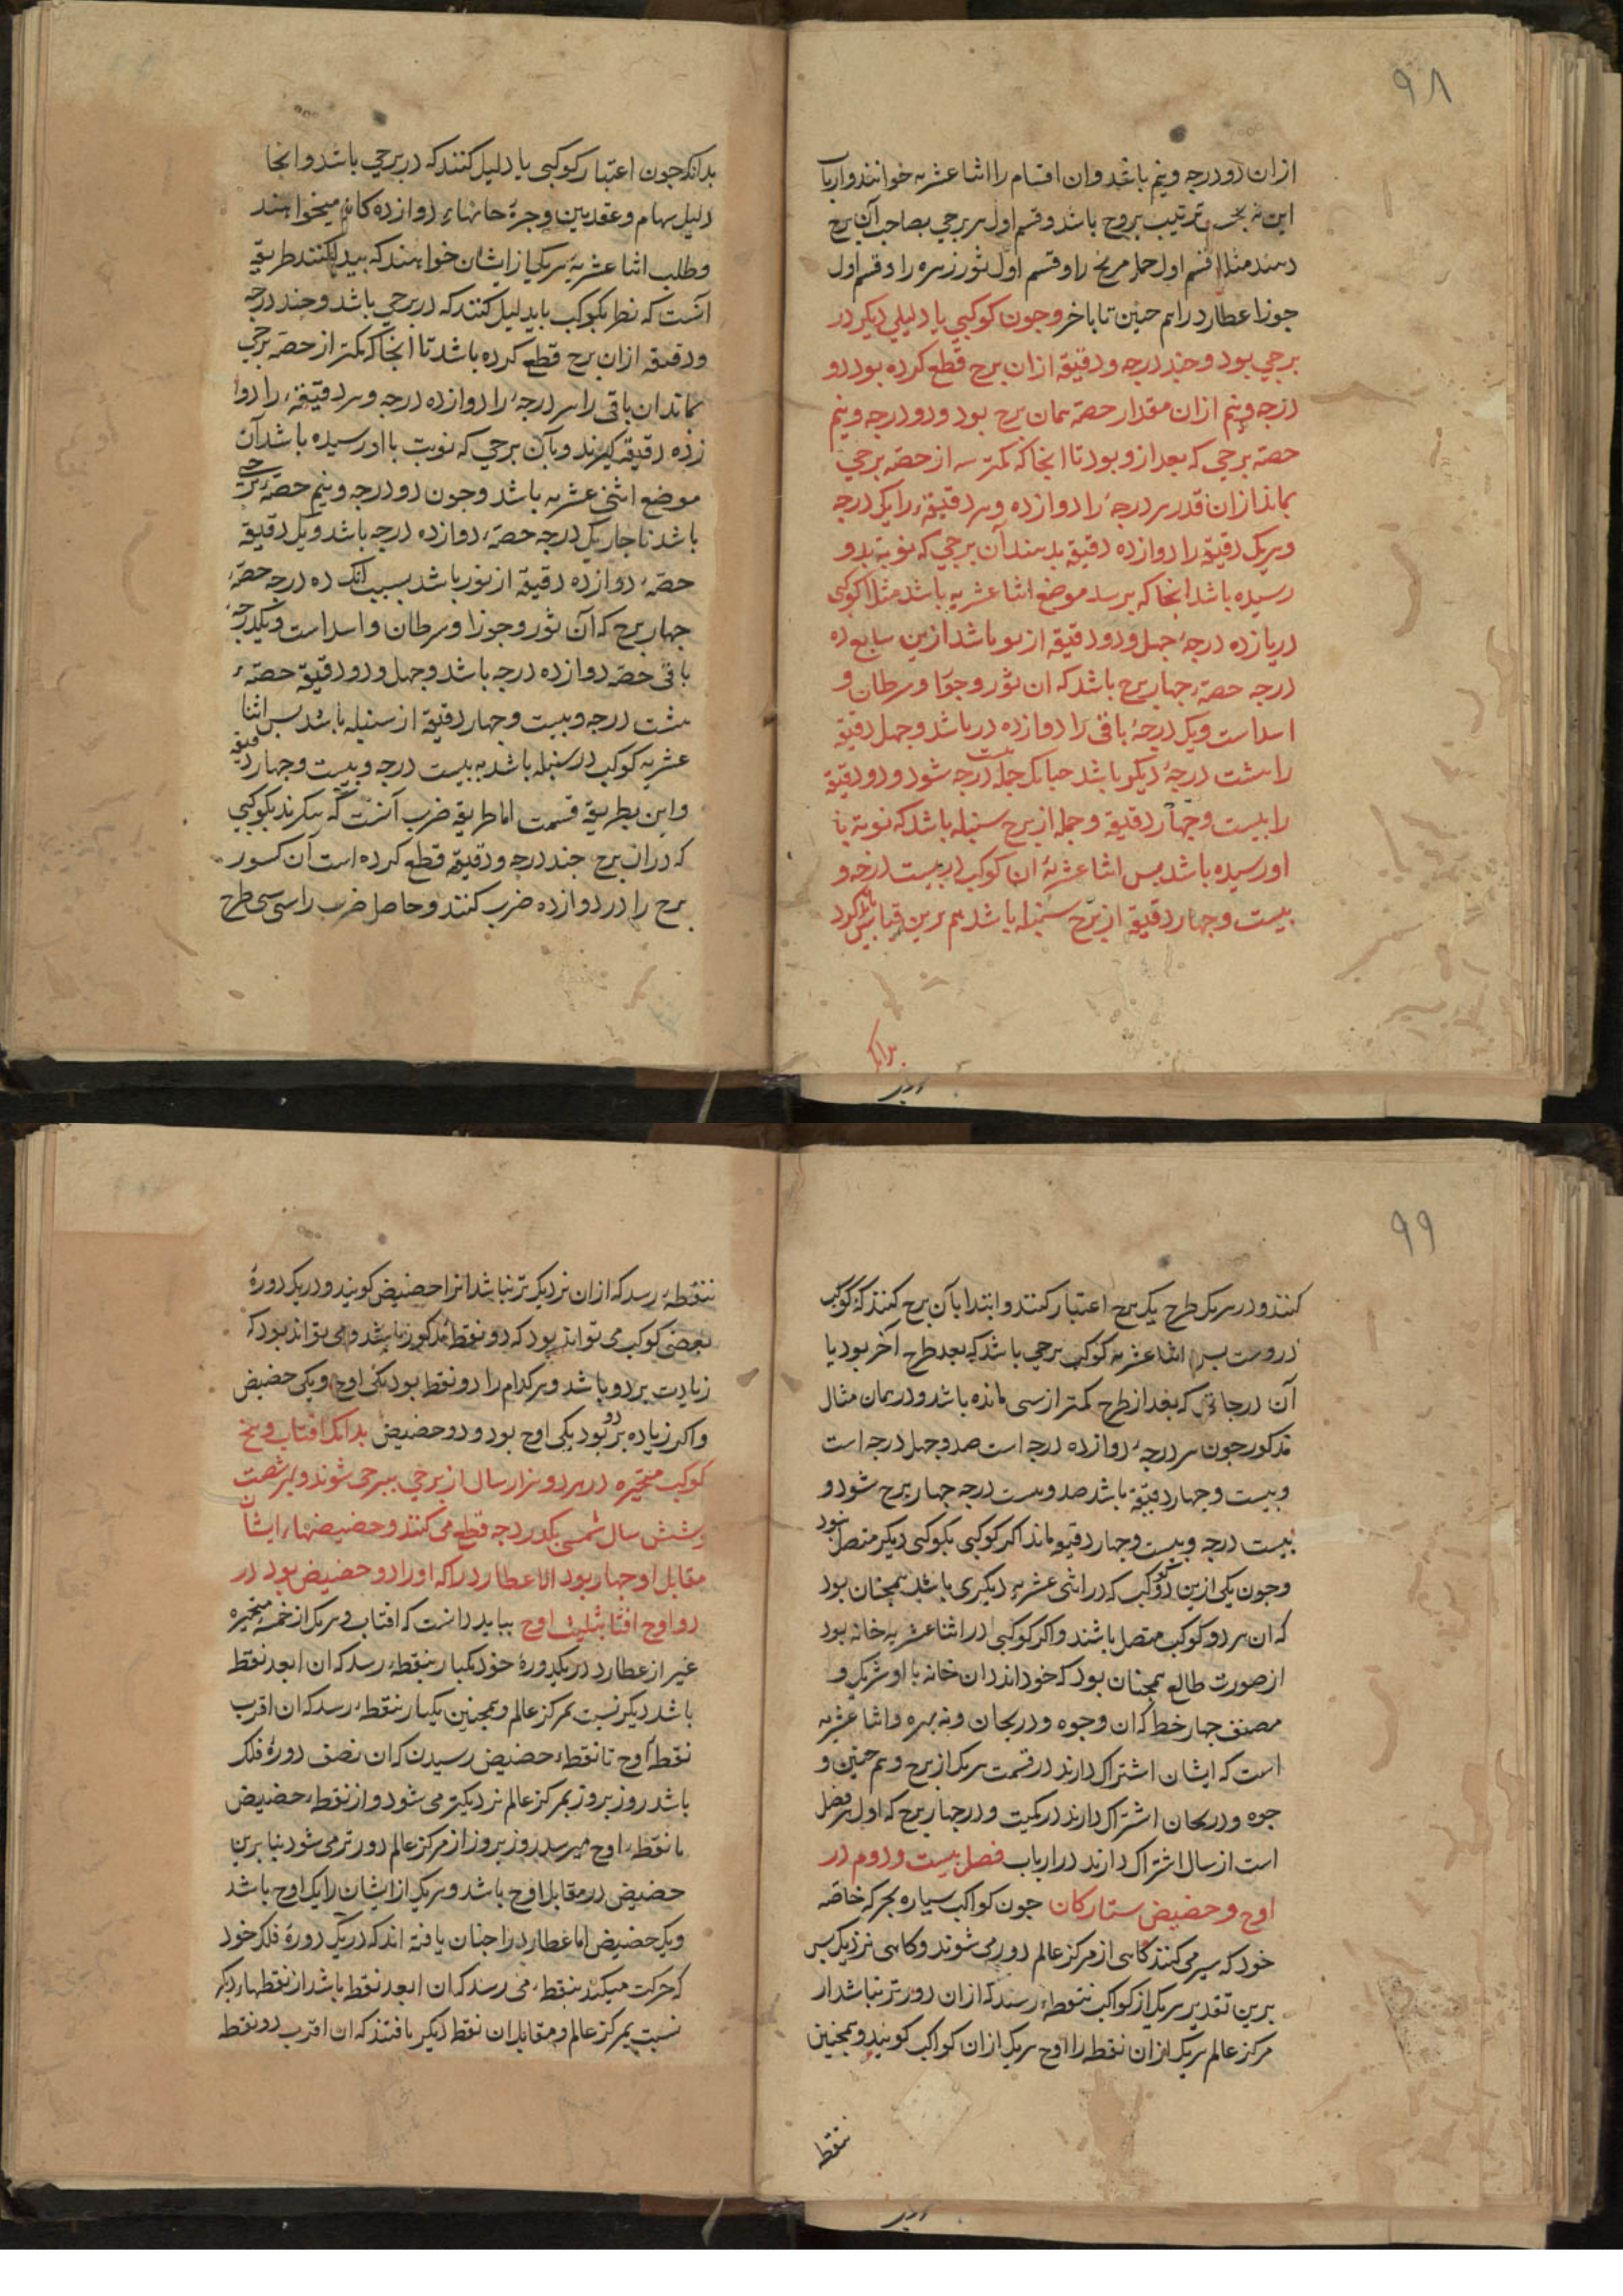 ۹۸
ازان دو درجه و نیم باشد و ان اقسام را اثنا عشریه خوانند و ارباب
این نه بحسب ترتیب بروج باشد و قسم اول هر برجی بصاحب آن برج
دهند مثلا قسم اول حمل مریخ را و قسم اول ثور زهره را و قسم اول
جوزا عطارد را هم چنین تا باخر و چون کوکبی یا دلیلی دیکر در
برجی بود و چند درجه و دقیقه ازان برج قطع کرده بود دو
درجه و نیم ازان مقدار حصه همان برج بود و دو درجه و نیم
حصه برجی که بعد ازو بود تا انجا که کمتر از حصه برجی
بماند ازان قدر هر درجهٔ را دوازده و هر دقیقهٔ را یک درجه
و هر یک دقیقه را دوازده دقیقه بدهند آن برجی که نوبه بدو
رسیده باشد انجا که برسد موضع اثنا عشریه باشد مثلا کوکبی
در یازده درجهٔ چهل و دو دقیقه از باشد ازین ده
درجه حصهٔ چهار برج باشد که ان ثور و جوزا و سرطان و
اسد است و یک درجهٔ باقی را دوازده در باشد و چهل دقیقه
را هشت درجهٔ دیکر باشد چنانک جمله بیست درجه شود و دو دقیقه
را بیست و چهار دقیقه و جمله از برج سنبله باشد که نوبه با
او رسیده باشد بس اثنا عشریهٔ ان کوکب در بیست درجه و
بیست و چهار دقیقه از برج سنبله باشد هم برین قیاس باید کرد
بدانک
بدانک چون اعتبار کوکبی یا دلیل کنند که در برجی باشد و انجا
دلیل سهام و عقدیین و جزهٔ خانهاء دوازده کانه میخواهند
و طلب اثنا عشریهٔ هر یکی از ایشان خواهند که بیدا کنند طریقه
آنست که نظر بکوکب یا بدلیل کنند که در برجی باشد و چند درجه
و دقیقه ازان برج قطع کرده باشد تا انجا که کمتر از حصه برجی
بماند ان باقی را هر درجهٔ را دوازده درجه و هر دقیقهٔ را دوا
زده دقیقه کیرند و بآن برجی که نوبت با او رسیده باشد آن
موضع اثنی عشریه باشد و چون دو درجه و نیم حصهٔ برجی
باشد ناچار یک درجه حصهٔ دوازده درجه باشد و یک دقیقه
حصهٔ دوازده دقیقه از ثور باشد بسبب آنک ده درجه حصهٔ
چهار برج که آن ثور و جوزا و سرطان و اسد است و یکدرجه
باقی حصه دوازده درجه باشد و چهل و دو دقیقه حصهٔ
هشت درجه و بیست و چهار دقیقه از سنبله باشد بس اثنا
عشریه کوکب در سنبله باشد به بیست درجه و بیست و چهار دقیقه
و این بطریقه قسمت اما طریقه ضرب آنست که بنکرند بکوکبی
که دران برج چند درجه و دقیقه قطع کرده است آن کسور
برج را در دوازده ضرب کنند و حاصل ضرب را سی سی طرح
۹۹
کنند و در هر یک طرح یک برج اعتبار کنند و ابتدا بآن برج کنند که کوکب
دروست بس اثنا عشریه کوکب برجی باشد که بعد طرح آخر بود یا
آن درجاتی که بعد از طرح کمتر از سی مانده باشد و در همان مثال
مذکور چون هر درجهٔ دوازده درجه است صد و چهل درجه است
و بیست و چهار دقیقه باشد صد و بیست درجه چهار برج شود و
بیست درجه و بیست و چهار دقیقه ماند اکر کوکبی بکوکبی دیکر متصل شود
و چون یکی ازین دو کوکب که در اثنی عشریهٔ دیکری باشد همچنان بود
که ان هر دو کوکب متصل باشند و اکر کوکبی در اثنا عشریه خانه بود
از صورت طالع همچنان بود که خود اندران خانه با او شریک و
مصنف چهار خط که ان وجوه و دریجان و نه بهره و اثنا عشریه
است که ایشان اشتراک دارند در قسمت هر یک از برج و هم چنین و
جوه و دریجان اشتراک دارند در کمیت و در چهار برج که اول هر فصل
است از سال اشتراک دارند در ارباب فصل بیست و دوم در
اوج و حضیض ستارکان چون کواکب سیاره بحرکه خاصه
خود که سیر می کنند کاهی از مرکز عالم دور می شوند و کاهی نزدیک بس
برین تقدیر هر یک از کواکب بنقطهٔ رسد که ازان دورتر نباشد از
مرکز عالم هر یک ازان نقطه را اوج هر یک ازان کواکب کویند و همچنین
بنقطه
بنقطهٔ رسد که ازان نزدیک تر نباشد انرا حضیض کویند و در یک دورهٔ
بعضی کوکب می تواند بود که دو نقطهٔ مذکور باشد و می تواند بود که
زیادت بر دو باشد و هر کدام را دو نقط بود یکی اوج و یکی حضیض
و اکر زیاده بر دو بود یکی اوج بود و دو حضیض بدانک افتاب و بنج
کوکب متحیره در هر دو هزار سال از برجی ببرجی شوند و بهر شصت
و شش سال شمسی یکدرجه قطع می کنند و حضیضهاء ایشان
مقابل اوجها بود الا عطارد را که او را دو حضیض بود در
دو اوج بباید دانست که افتاب و هر یک از خمسهٔ متحیره
غیر از عطارد در یکدورهٔ خود یکبار بنقطهٔ رسد که ان ابعد نقط
باشد دیکر نسبت بمرکز عالم و همچنین یکبار بنقطهٔ رسد که ان اقرب
نقطهٔ اوج تا نقطهٔ حضیض رسیدن که ان نصف دورهٔ فلک
باشد روز بروز بمرکز عالم نزدیکتر می شود و از نقطهٔ حضیض
تا نقطهٔ اوج میرسد روز بروز از مرکز عالم دورتر می شود بنا برین
حضیض در مقابل اوج باشد و هر یک از ایشان را یک اوج باشد
و یک حضیض اما عطارد را چنان یافته اند که در یک دورهٔ فلک خود
که حرکت میکند بنقطهٔ می رسد که ان ابعد نقط باشد از نقطهاء دیکر
نسبت بمرکز عالم و مقابل ان نقط دیکر یافتند که ان اقرب دو نقط